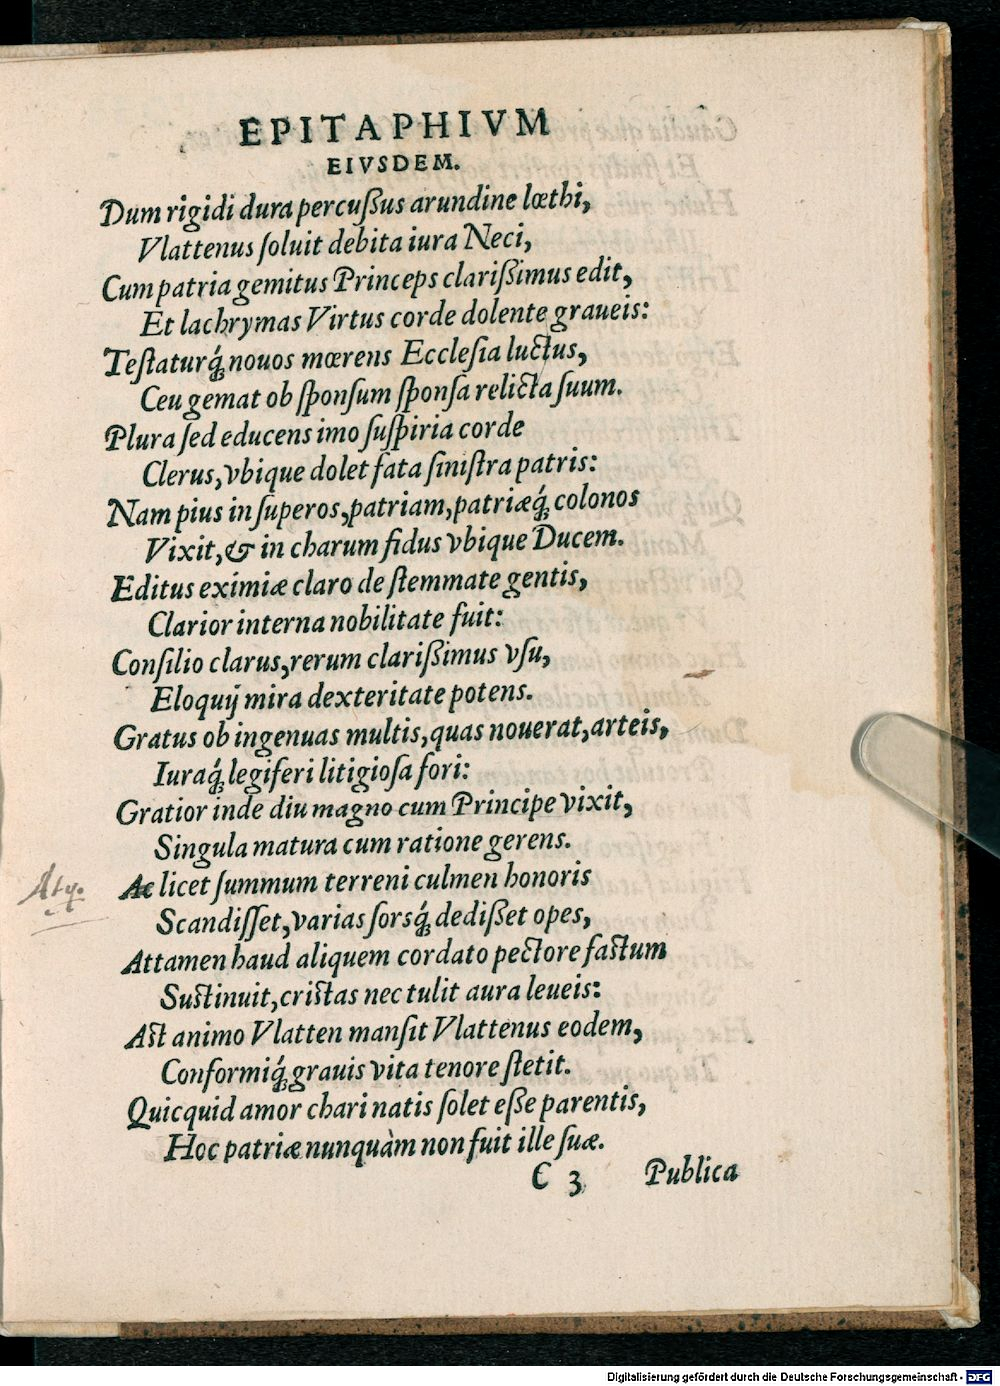 EPITAPHIVM
EIVSDEM.
Dum rigidi dura percußus arundine lœthi,
Vlattenus ſoluit debita iura Neci,
Cum patria gemitus Princeps clarißimus edit,
Et lachrymas Virtus corde dolente graueis:
Teſtaturq́; nouos mœrens Eccleſia luctus,
Ceu gemat ob ſponſum ſponſa relicta ſuum.
Plura ſed educens imo ſuſpiria corde
Clerus, vbique dolet fata ſiniſtra patris:
Nam pius in ſuperos, patriam, patriæq́; colonos
Vixit, & in charum fidus vbique Ducem.
Editus eximiæ claro de ſtemmate gentis,
Clarior interna nobilitate fuit:
Conſilio clarus, rerum clarißimus vſu,
Eloquij mira dexteritate potens.
Gratus ob ingenuas multis, quas nouerat, arteis,
Iuraq́; legiferi litigioſa fori:
Gratior inde diu magno cum Principe vixit,
Singula matura cum ratione gerens.
Atq. Ac licet ſummum terreni culmen honoris
Scandiſſet, varias ſorsq́; dedißet opes,
Attamen haud aliquem cordato pectore factum
Suſtinuit, criſtas nec tulit aura leueis:
Aſt animo Vlatten manſit Vlattenus eodem,
Conformiq́; grauis vita tenore ſtetit.
Quicquid amor chari natis ſolet eße parentis,
Hoc patriæ nunquàm non fuit ille ſuæ.
C 3 Publica
Digitalisierung gefördert durch die Deutsche Forschungsgemeinschaft - DFG